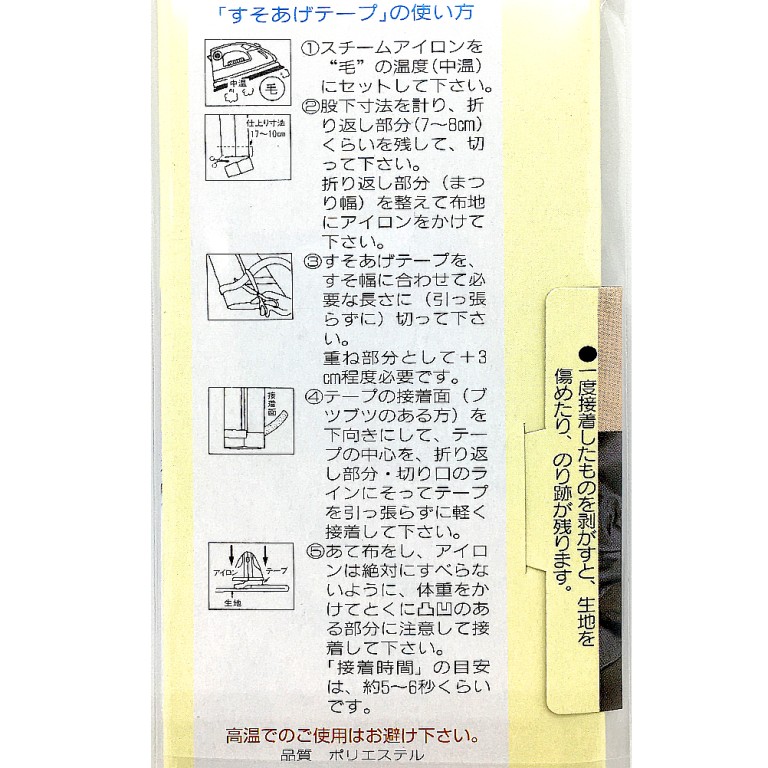 「すそあげテープ」の使い方
①スチームアイロンを
“毛”の温度(中温)
にセットして下さい。
中温
毛
②股下寸法を計り、折
り返し部分(7〜8cm)
くらいを残して、切
って下さい。
折り返し部分（まつ
り幅）を整えて布地
にアイロンをかけて
下さい。
仕上り寸法
17〜10cm
③すそあげテープを、
すそ幅に合わせて必
要な長さに（引っ張
らずに）切って下さ
い。
重ね部分として＋3
cm程度必要です。
④テープの接着面（ブ
ツブツのある方）を
下向きにして、テー
プの中心を、折り返
し部分・切り口のラ
インにそってテープ
を引っ張らずに軽く
接着して下さい。
接着面
⑤あて布をし、アイロ
ンは絶対にすべらな
いように、体重をか
けてとくに凸凹のあ
る部分に注意して接
着して下さい。
「接着時間」の目安
は、約5〜6秒くらい
です。
アイロン
テープ
生地
高温でのご使用はお避け下さい。
品質　ポリエステル
●一度接着したものを剥がすと、生地を
傷めたり、のり跡が残ります。